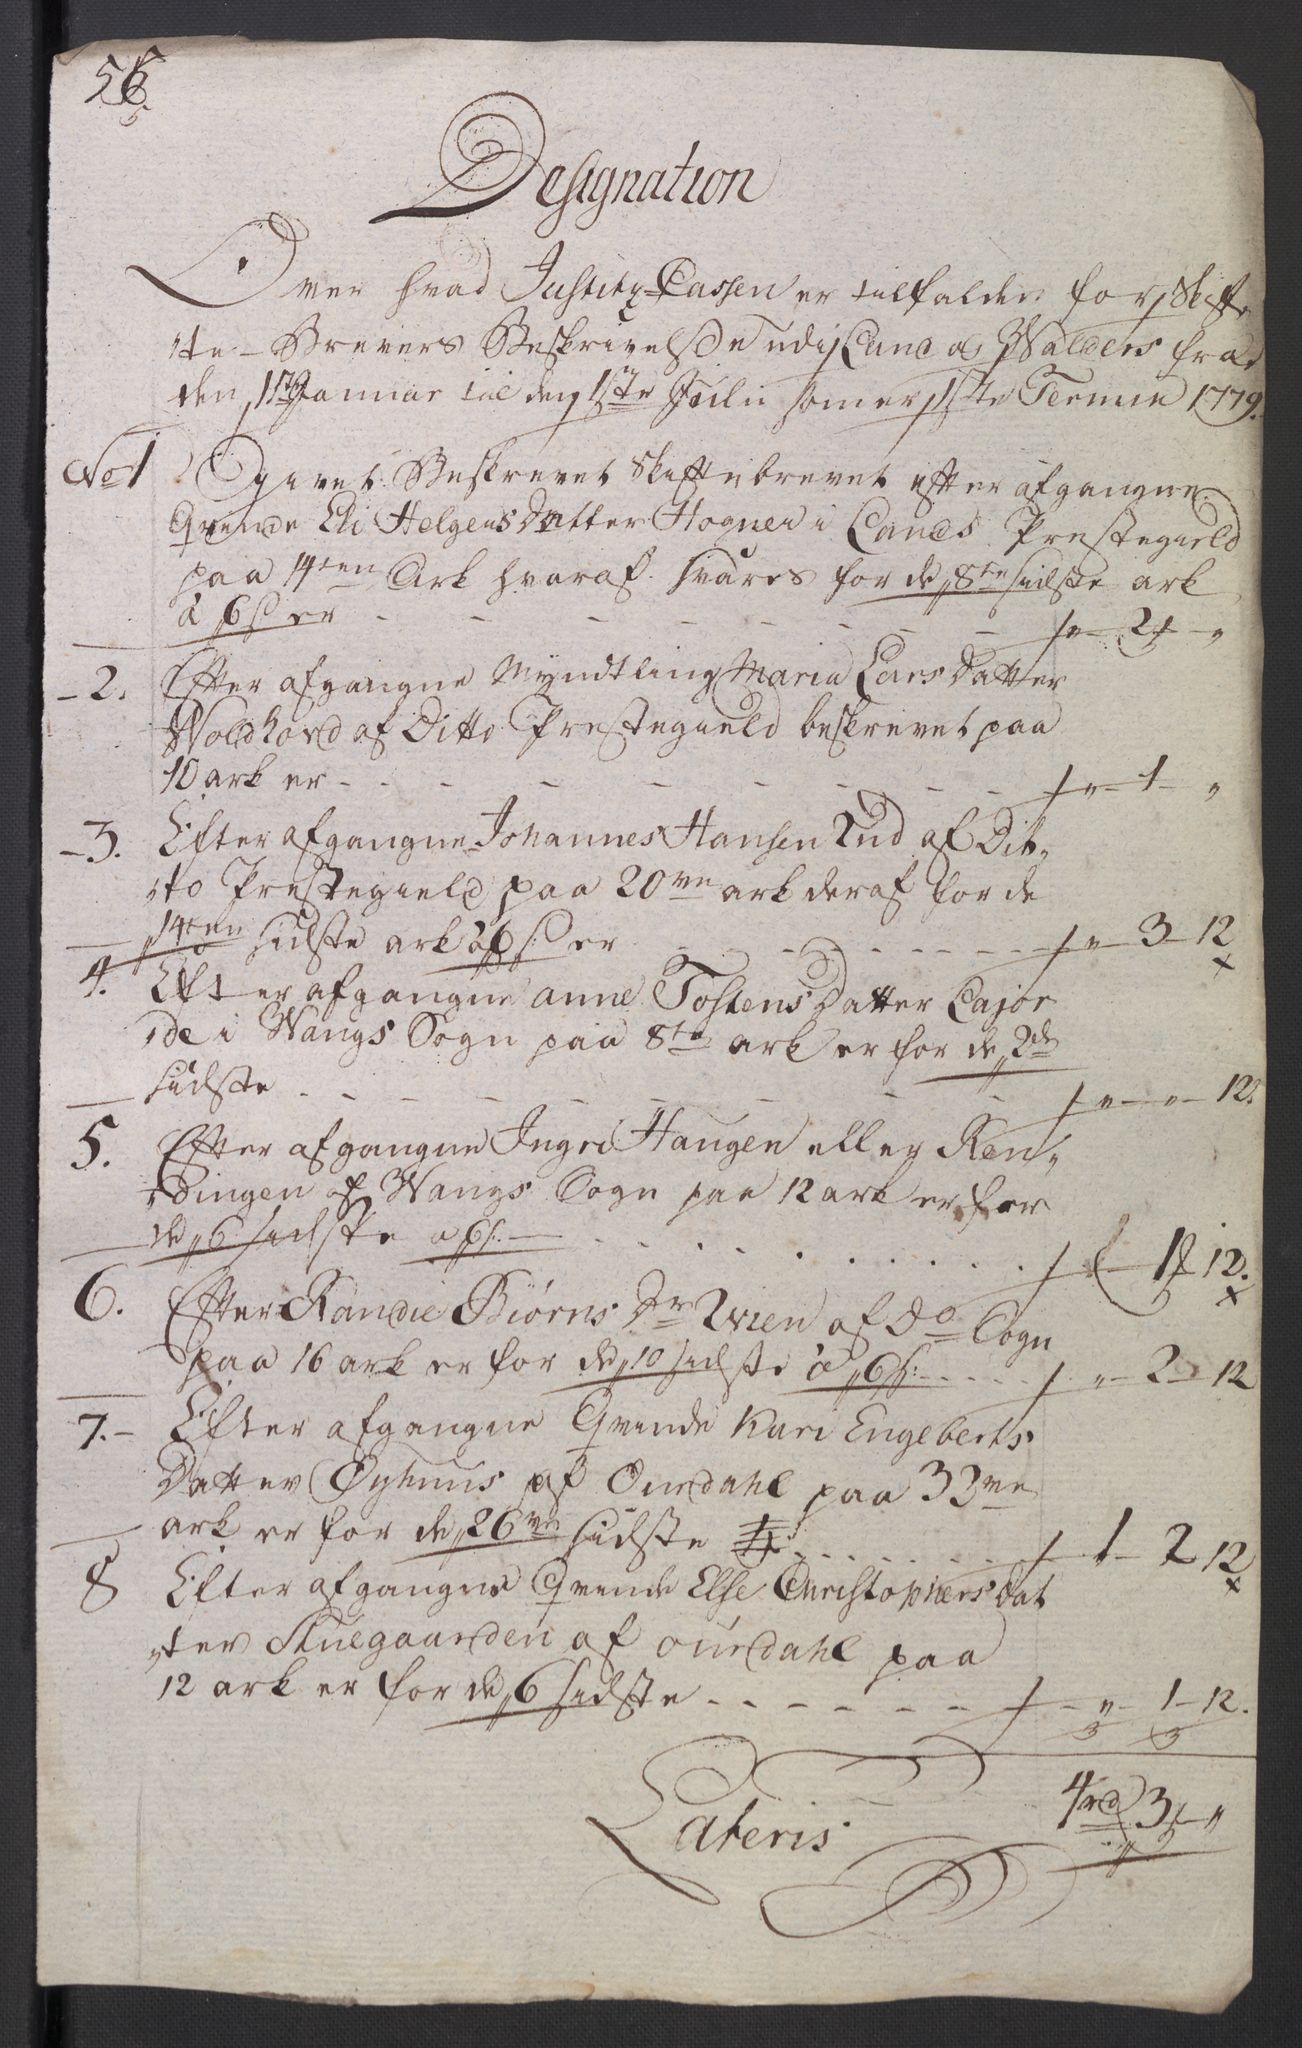 56.
Designation
Over hvad Justitz Cassen er tilfalden for Skift
te-Brevers Beskrivelse udi Land og Walders fra
den 1ste Januar til den 1ste Julii som er 1ste Termin 1779.
No 1 Givet Beskrevet Skiftebrevet efter afgangne
Qvinde Eli Helges Datter Hogner i Lands Prestegield
paa 14ten Ark hvoraf svares for de 8te sidste ark
à 6 s er - - - - - - - " - 2 - "
- 2. Efter afgangne Myndtling Maria Lars Datter
Woldhovd af Ditto Prestegield beskrevet paa
10 ark er - - - - - - - " - 1 - "
- 3. Efter afgangne Johannes Hansen Lud af Dit,,
,,to Prestegield paa 20ve ark deraf for de
14ten sidste ark à 6 s: er - - - - - - " - 3 - 12
4. Efter afgangne Anne Tostens Datter Cajor
,,de i Wangs Sogn paa 8te ark er for de 2de
sidste - - - - - - - " - " - 12.
5. Efter afgangne Ingri Haugen eller Ren,,
,,dingen af Wangs Sogn paa 12 ark er for
de 6 sidste a 6 s: - - - - - - 1 12.
6. Efter Randie Biørns Dr Wien af Do Sogn
paa 16 ark er for de 10 sidste à 6 s: - - - - " - 2 - 12
7. - Efter afgangne Qvinde Kari Engeberts
Datter Øyhuus af Ourdahl paa 33ve
ark er for de 26ve sidste - - - - - 1 - 2 12
8 Efter afgangne Qvinde Else Christophers Dat
,,ter Stuegaarden af Ourdahl paa
12 ark er for de 6 sidste - - - - - - - " - 1 - 12.
3 3
Lateris 4rd 3 - "